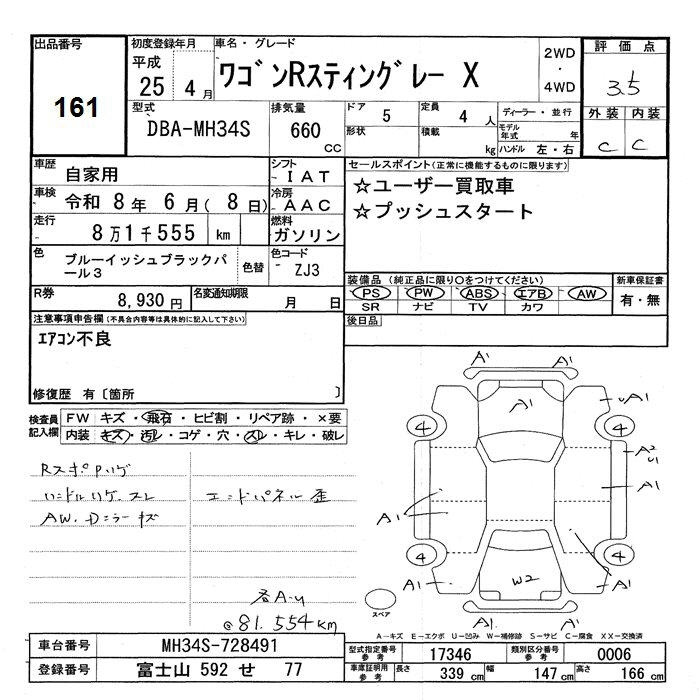 出品番号
161
初度登録年月
平成
25 4 月
車名・グレード
ワゴンRスティングレー X
2WD
・
4WD
評価点
3.5
外装 内装
C C
型式
DBA-MH34S
排気量
660 CC
ドア 5
形状
定員 4 人
積載 kg
ディーラー・並行
モデル年式 年
ハンドル 左・右
車歴 自家用
シフト IAT
車検 令和 8年 6月( 8日)
冷房 AAC
走行 8万1千555 km
燃料 ガソリン
色 ブルーイッシュブラックパール3
色替
色コード ZJ3
R券 8,930円
名変通知期限 月 日
セールスポイント(正常に機能するものに限ります)
☆ユーザー買取車
☆プッシュスタート
装備品(純正品に限り○をつけてください)
PS PW ABS エアB AW
SR ナビ TV カワ
新車保証書
有・無
後日品
注意事項申告欄(不具合内容等は具体的に記入して下さい)
エアコン不良
修復歴 有〔箇所 〕
検査員記入欄
FW キズ・飛石・ヒビ割・リペア跡・×要
内装 キズ・汚レ・コゲ・穴・スレ・キレ・破レ
ハンドルハゲ.スレ
エンドパネル歪
@81.554km
A1 A1
A1
A1
4 4
A2
U1
A1
A1
A1
4 4
A1 A1
W2
A1 A1
スペア
A―キズ E―エクボ U―凹み W―補修跡 S―サビ C―腐食 XX―交換済
車台番号 MH34S-728491
登録番号 富士山 592 せ 77
型式指定番号 参考 17346
類別区分番号 参考 0006
車庫証明用 参考 長さ 339 cm 幅 147 cm 高さ 166 cm